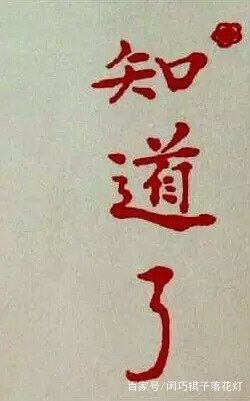 知道了
百家号/闲巧棋子落花灯